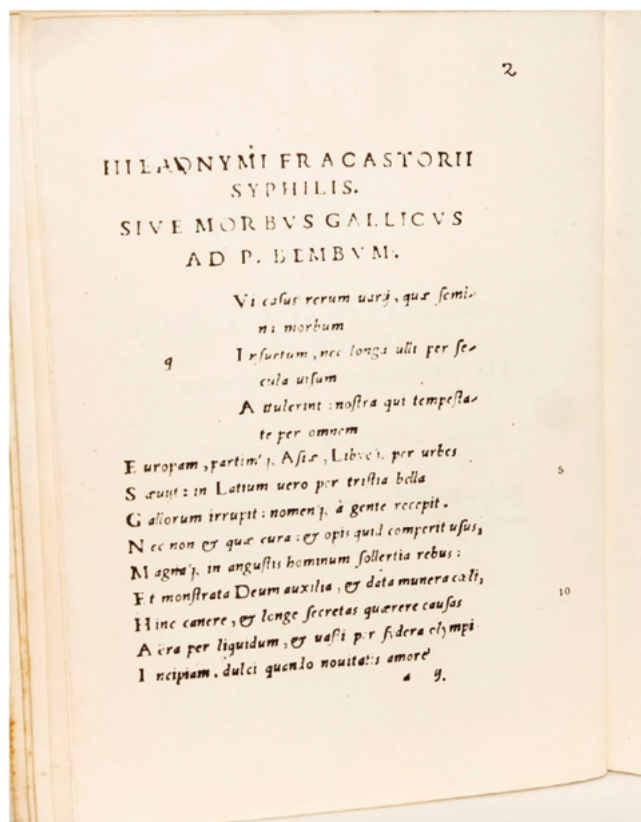 2
HIERONYMI FRACASTORII
SYPHILIS.
SIVE MORBVS GALLICVS
AD P. BEMBVM.
Vi casus rerum uarij, quæ semi-
ni morbum
q
Insuetum, nec longa ulli per se-
cula uisum
Attulerint: nostra qui tempesta-
te per omnem
Europam, partimq́; Asiæ, Libyeq́; per urbes
5
Sæuijt: in Latium uero per tristia bella
Gallorum irrupit: nomenq́; à gente recepit.
Nec non & quæ cura: & opis quid comperit usus,
Magnaq́; in angustis hominum sollertia rebus:
Et monstrata Deum auxilia, & data munera cæli,
Hinc canere, & longe secretas quærere causas
10
Aëra per liquidum, & uasti per sydera olympi
Incipiam, dulci quando nouitatis amore
a ij.